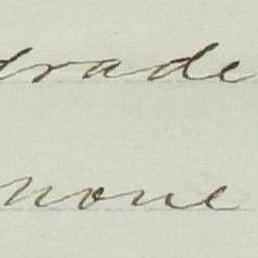 trade
none